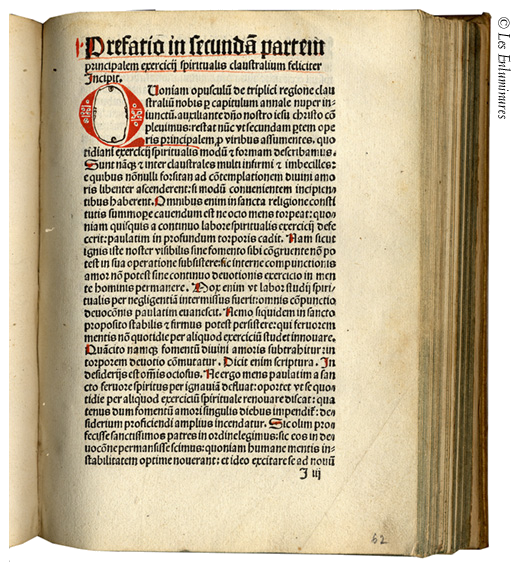 Prefatio in secundã partem
principalem exercicij spiritualis claustralium feliciter
Incipit.
QUoniam opusculũ de triplici regione clau
straliũ nobis ꝑ capitulum annale nuper in
iunctũ auxiliante dño nostro iesu christo cõ
pleuimus: restat nũc vt secundam ptem ope
ris principalem, ꝓ viribus assumentes, quo
tidiani exercicij spiritualis modũ & formam describamus.
Sunt nãqꝫ & inter claustrales multi infirmi & imbecilles:
e quibus nõnulli forsitan ad cõtemplationem diuini amo
ris libenter ascenderent: si modũ conuenientem incipien
tibus haberent. Omnibus enim in sancta religione consti
tutis summope cauendum est ne ocio mens torpeat: quo
niam quisquis a continuo labore spiritualis exercicij defe
cerit: paulatim in profundum torporis cadit. Nam sicut
ignis iste noster visibilis sine fomento sibi cõgruente nõ po
test in sua operatione subsistere: sic interne compunctionis
amor nõ potest sine continuo deuotionis exercicio in men
te hominis permanere. Mox enim vt labor studij spiri
tualis per negligentiã intermissus fuerit: omnis cõpunctio
deuocõnis paulatim euanescit. Nemo siquidem in sancto
proposito stabilis & firmus potest persistere: qui feruorem
mentis nõn quotidie per aliquod exerciciũ studet innouare.
Quãcito namqꝫ fomentũ diuini amoris subtrahitur: in
torporem deuotio cõmutatur. Dicit enim scriptura. In
desiderijs est om̃is ociosus. Ne ergo mens paulatim a san
cto feruore spiritus per ignauiã defluat: oportet vt se quo
tidie per aliquod exerciciũ spirituale renouare discat: qua
tenus dum fomentũ amoris singulis diebus impendit̃: de
siderium proficiendi amplius incendatur. Sic olim pro
fecisse sanctissimos patres in ordine legimus: sic eos in de
uocõne permansisse scimus: quoniam humane mentis in
stabilitatem optime nouerant: et ideo excitare se ad nouũ
J iij
62
© Les Enluminures